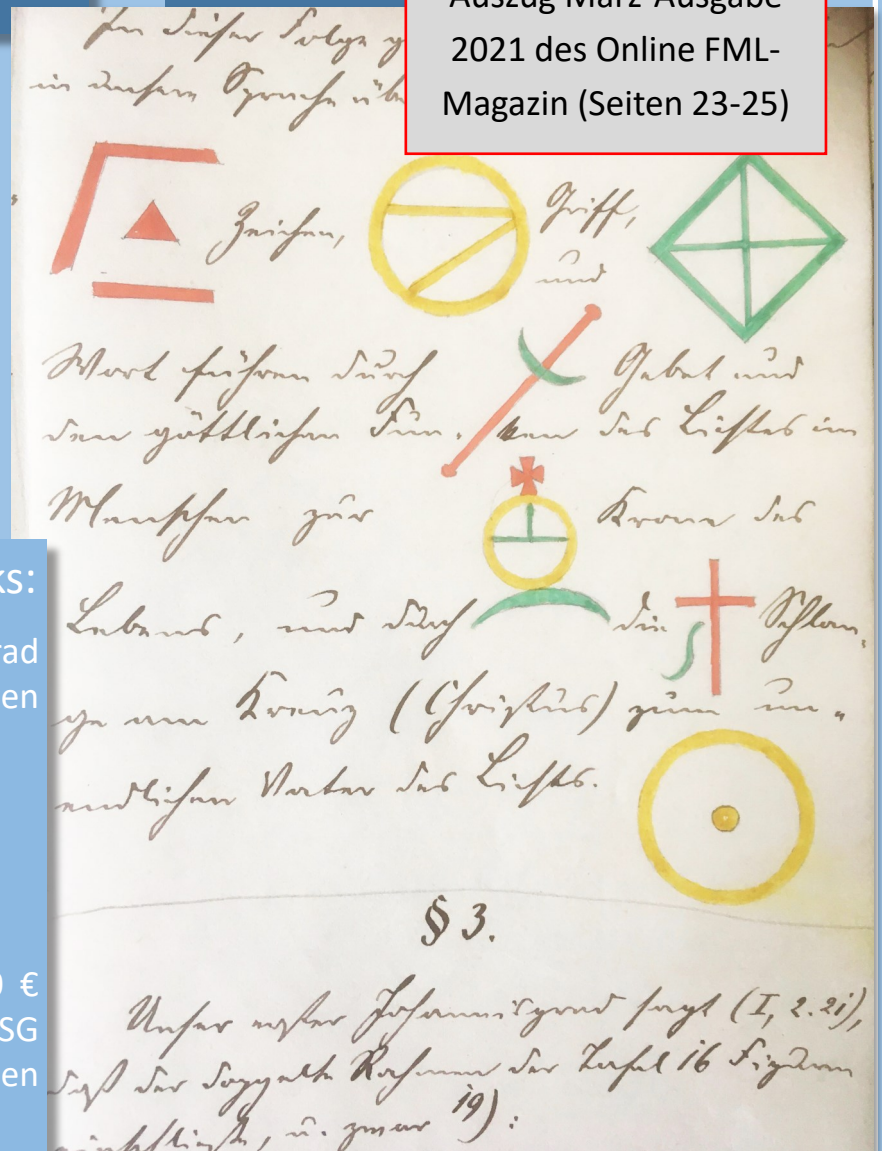 Auszug März-Ausgabe
2021 des Online FML-
Magazin (Seiten 23-25)
In dieser Folge
in unsere Sprache
Zeichen, Griff,
und
Wort führen durch Gebet und
den göttlichen Fun- ken des Lichtes im
Menschen zur Krone des
Lebens, und durch die Schlan-
ge am Kreuz (Christus) zum un-
endlichen Vater des Lichts.
§ 3.
Unser erster Johannisgrad sagt (I, 2. 21),
daß der doppelte Rahmen der Tafel 16 Figuren
einschließt, u. zwar 19) :
ks:
rad
en
€
SG
en